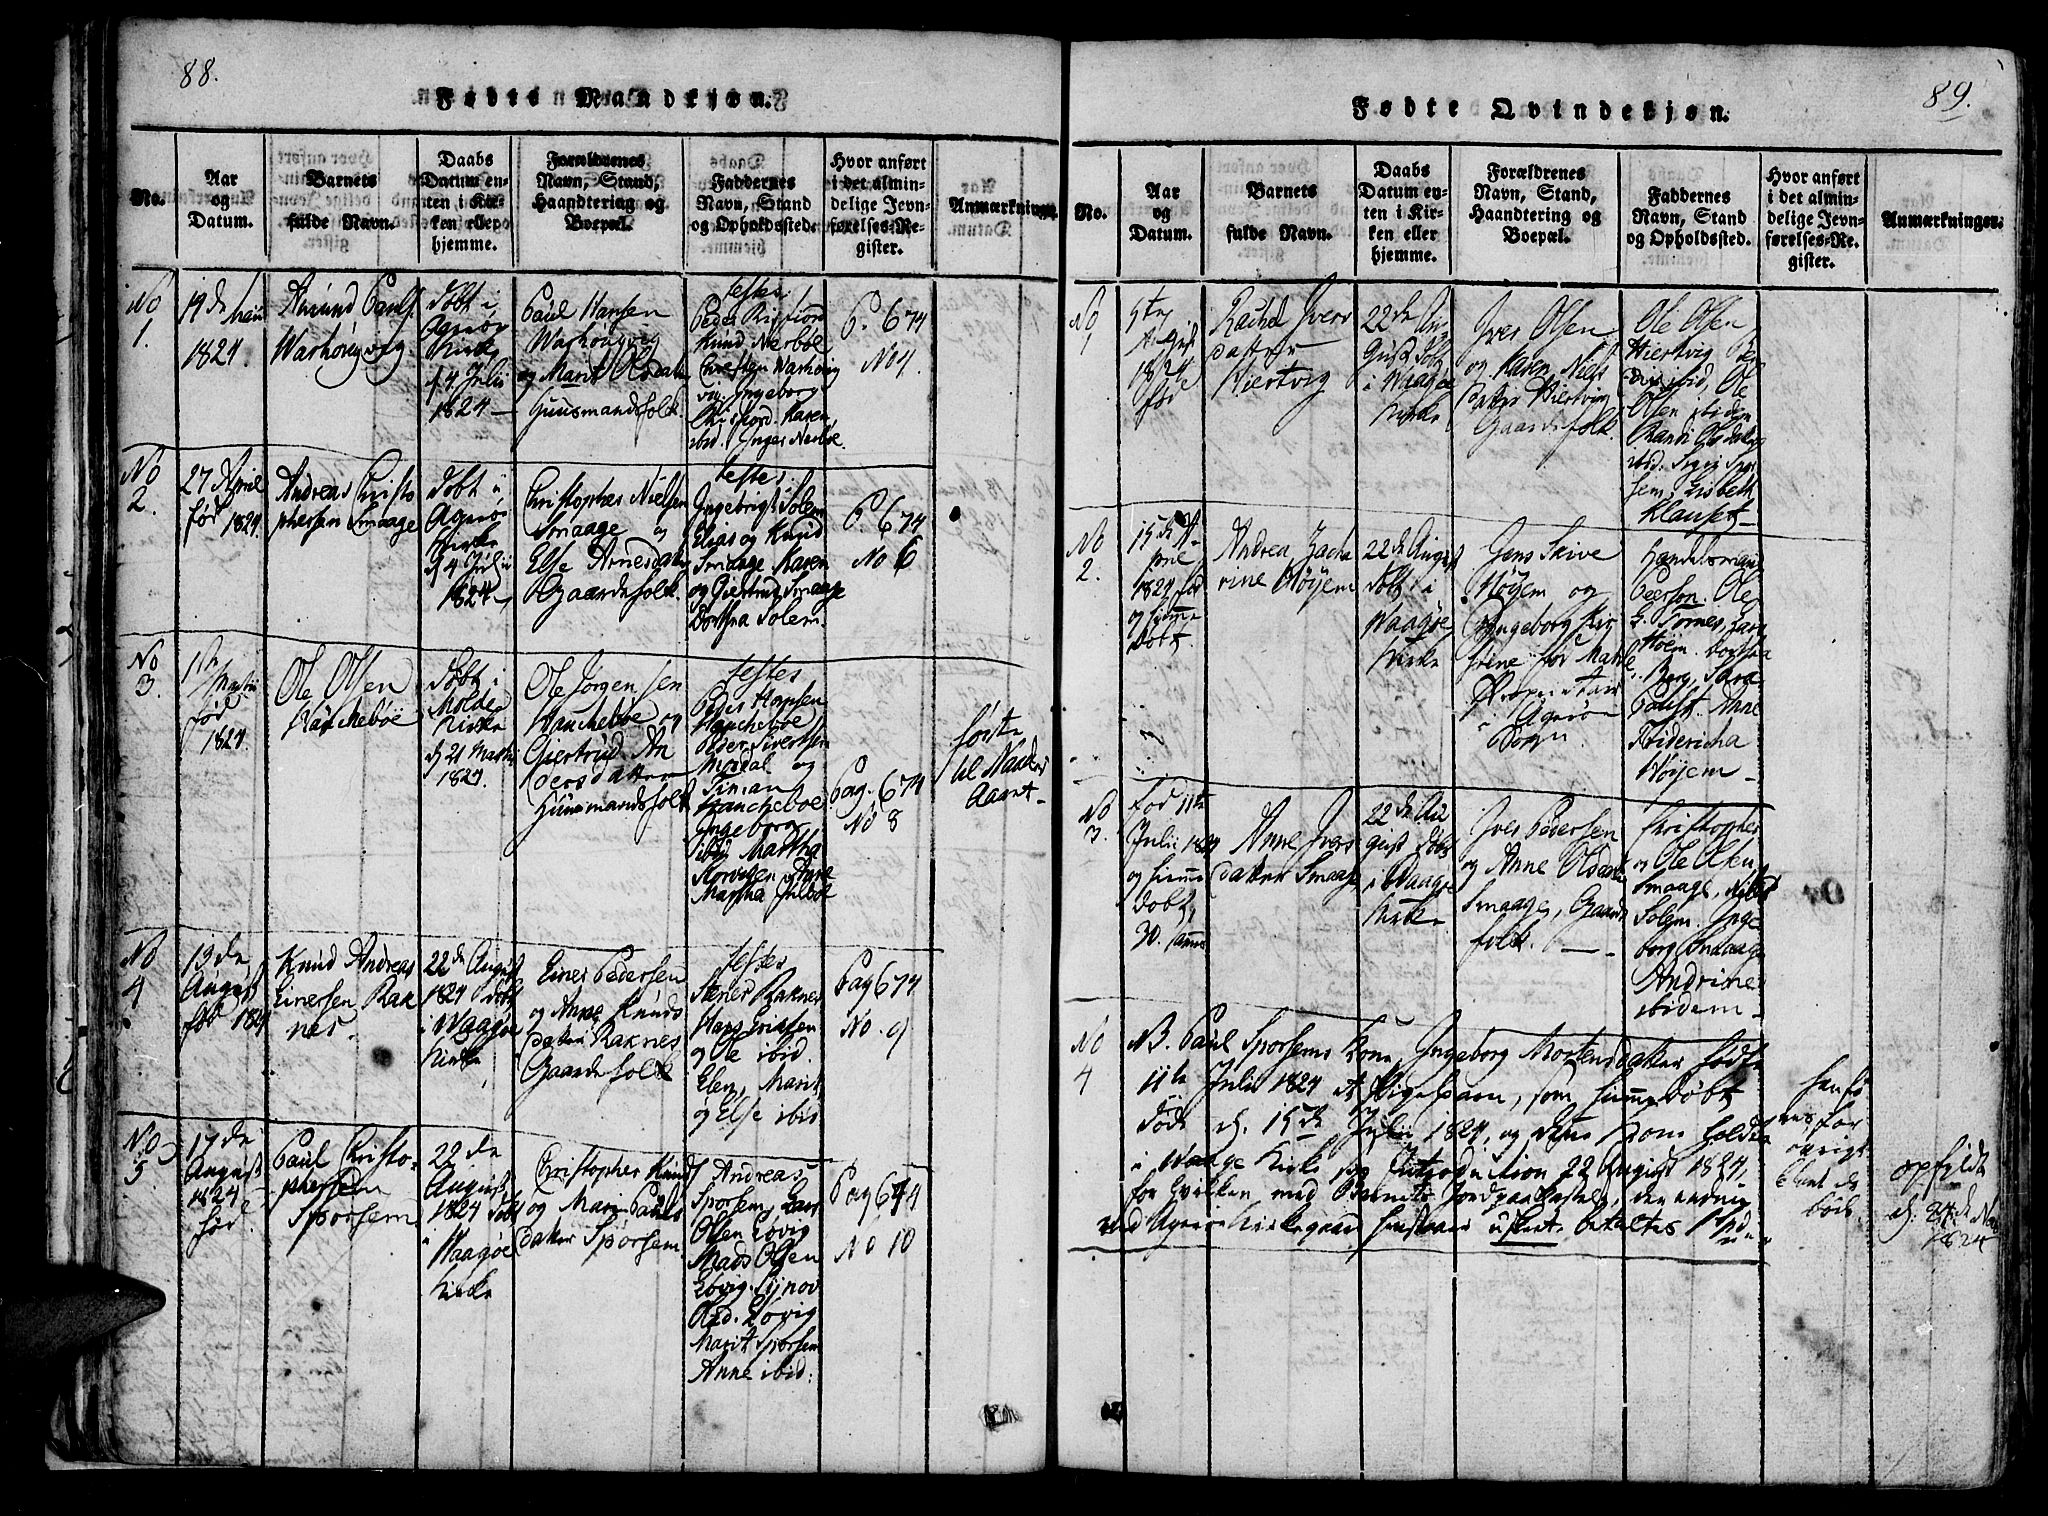 88.
Fødte Mandkjøn.
No.
Aar
og
Datum.
Barnets
fulde Navn.
Daabs
Datum en-
ten i Kir-
ken eller
hjemme.
Forældrenes
Navn, Stand,
Haandtering og
Boepæl.
Faddernes
Navn, Stand
og Opholdssted.
Hvor anført
i det almin-
delige Jevn-
førelses-Re-
gister.
Anmærkninger.
No
1.
14 de
1824.
Amund Pauls
Warhougvig
Døbt i
Agerøe
Kirke
d 4 Julii
1824
Paul Hansen
Warhougvig
og Marit Olsdatter
Huusmandsfolk
testes:
Knud Nerbøe
Christen Warhoug
vig. Ingeborg
Karen
ibid. Inger Nerbøe
P. 674
No 4
No
2.
27 April
fød 1824
Andreas Christo
phersen Smaage
Døbt i
Agerøe
Kirke
d 4 Julii
1824
Christopher Nielsen
Smaage og
Else Arnesdatter
Gaardsfolk.
testes:
Ingebrigt Solem
Elias og Knud
Smaage Karen
og Giertrud Smaage
Dorthea Solem.
P 674
No 6
No
3.
1te
Martii
fød
1824
Ole Olsen
Hauchebøe
Døbt i
Molde
Kirke
d 21 Martii
1824.
Ole Jørgensen
Hauchebøe og
Giertrud An
dersdatter
Huusmandsfolk
testes
Peder Hansen
Hauchebøe
Peder Sivertsen
Mordal og
Hauchebøe
Ingeborg
ibid Martha
Pag. 674
No 8
første
til Naaboe
No
4
13 de
August
fød 1824
Knud Andreas
Einersen Rak
nes.
22 de August
1824 døbt
i Waagøe
Kirke
Einer Pedersen
og Anne Knuds
datter Raknes
Gaardsfolk
testes
Stener Raknes
Hans Ericksen
og Ole ibid.
Elen, Marit
og Else ibid
Pag 674
No. 9
No
5
17 de
August
1824
fød.
Paul Christo-
phersen
Sporsem
22 de
August
1824 døbt
i Waagøe
Kirke
Christopher Knuds
og Mari Pauls
datter Sporsem
Andreas
Sporsem, Lars
Olsen Elvig
Mads Olsen
Elvig. Synov
Olsd. Elvig
Marit Sporsem
Anne ibid:
Pag 674
No 10
89.
Fødte Qvindekjøn.
No.
Aar
og
Datum.
Barnets
fulde Navn.
Daabs
Datum en-
ten i Kir-
ken eller
hjemme.
Forældrenes
Navn, Stand,
Haandtering og
Boepæl.
Faddernes
Navn, Stand
og Opholdssted.
Hvor anført
i det almin-
delige Jevn-
førelses-Re-
gister.
Anmærkninger.
No
1
5te
August
1824
fød
Rachel Ivers
datter
Hiertvig
22 de Au
gust døbt
i Waagøe
Kirke
Iver Olsen
og Karen Niels
datter Hiertvig
Gaardsfolk.
Ole Olsen
Hiertvig Pe
der ibid. Ole
Olsen ibidem
Randi Olsdatter
ibid. Siri Spor
sem, Lisbeth
Klauset
No
2.
15 de A-
pril
1824 fød
og hiemme
døbt.
Andrea Zacha
rine Høyem
22 de August
døbt i
Waagøe
Kirke
Jens Skive
Høyem og
Ingeborg Kir
stine
Proprietair
Agerøe
Handelsmand
Peerson. Ole
G. Tornes, Lars
Høem. Dorthea
Berg, Sara
Faust. Anne
Fridericha
Høyem
No
3.
Fød 11te
Julii 1824
og hiemme
døbt,
30.
Anne Ivers
datter Smaage
22 de Au
gust døbt
i Waagøe
Kirke
Iver Pedersen
og Anne Olsdatter
Smaage, Gaards
folk.
Christopher
og Ole Olsen
Smaage,
Solem. Inge
borg Smaage
Andrine
ibidem
No
4
NB. Paul Sporsems Kone, Ingeborg Mortensdatter fødte
11te Julii 1824 et Pigebarn, som hiemmedøbt
døde d. 15 de Julii 1824, og dens Kone holdte
i Waage Kirke sin Introduction 22 August 1824,
for hvilken, med Barnets Jordpaakastelse, den endnu
ved Agerøe Kirkegaard henstaar uskeet. betaltes 1
opfyldt
d. 27 de No
1824